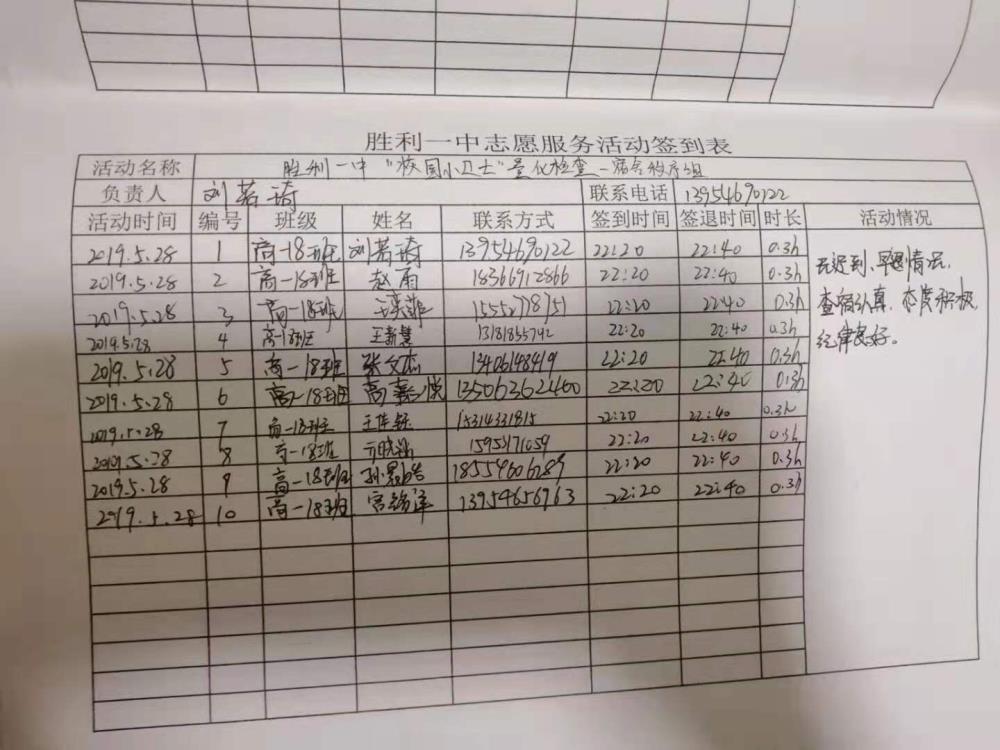 胜利一中志愿服务活动签到表
活动名称 胜利一中“校园小卫士”量化检查-宿舍秩序组
负责人 刘若琦 联系电话 13954690122
活动时间 编号 班级 姓名 联系方式 签到时间 签退时间 时长 活动情况
2019.5.28 1 高一18班 刘若琦 13954690122 22:20 22:40 0.3h
2019.5.28 2 高一18班 赵雨 18566912866 22:20 22:40 0.3h
2019.5.28 3 高一18班 15552778751 22:20 22:40 0.3h
2019.5.28 4 高一18班 王新慧 13181855742 22:20 22:40 0.3h
2019.5.28 5 高一18班 张文杰 13406148419 22:20 22:40 0.3h
2019.5.28 6 高一18班 高嘉悦 13506362400 22:20 22:40 0.3h
2019.5.28 7 高一18班 15314331815 22:20 22:40 0.3h
2019.5.28 8 高一18班 22:20 22:40 0.3h
2019.5.28 9 高一18班 18554606289 22:20 22:40 0.3h
2019.5.28 10 高一18班 13954656763 22:20 22:40 0.3h
无迟到、早退情况,
查宿认真,态度积极,
纪律良好。